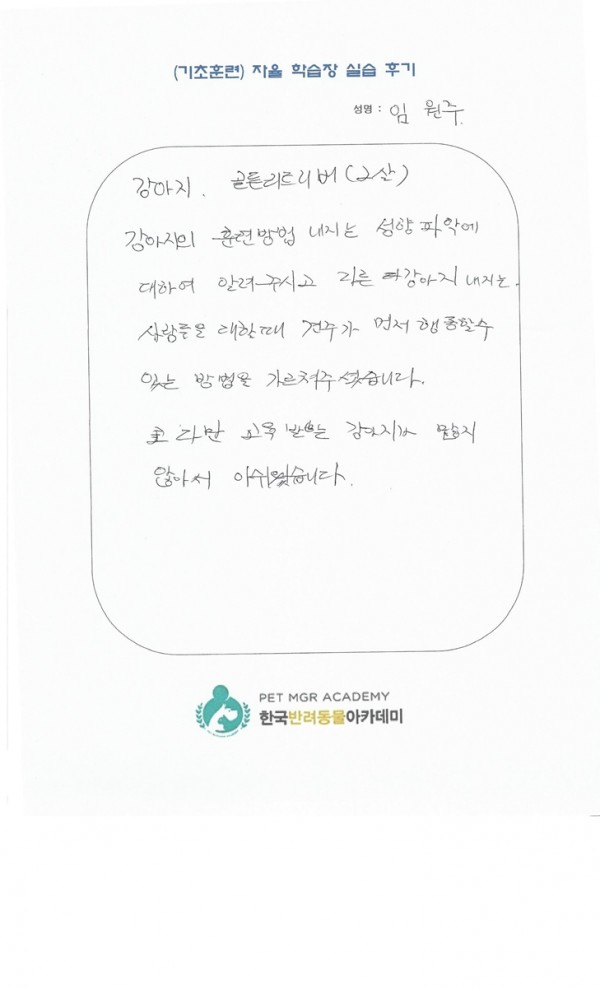 (기초훈련) 자율 학습장 실습 후기
성명 : 임 원주
강아지. 골든리트리버(2살)
강아지의 훈련방법 내지는 성향파악에
대하여 알려주시고 다른 강아지 내지는
사람들을 대할때 견주가 먼저 행동할수
있는 방법을 가르쳐주셨습니다.
다만 교육받는 강아지가 많지
않아서 아쉬웠습니다.
PET MGR ACADEMY
한국반려동물아카데미